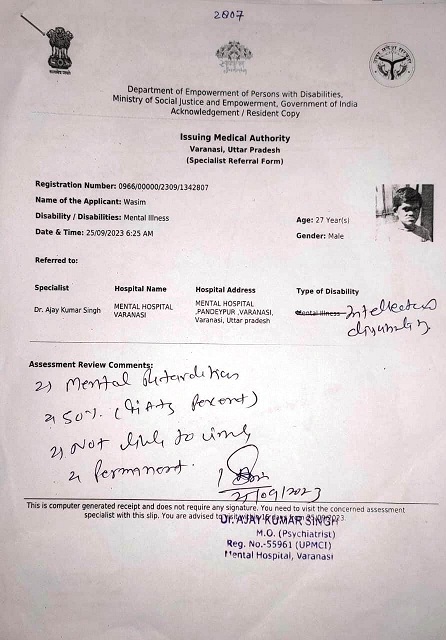 2807
Department of Empowerment of Persons with Disabilities,
Ministry of Social Justice and Empowerment, Government of India
Acknowledgement / Resident Copy
Issuing Medical Authority
Varanasi, Uttar Pradesh
(Specialist Referral Form)
Registration Number: 0966/00000/2309/1342807
Name of the Applicant: Wasim
Disability / Disabilities: Mental Illness
Age: 27 Year(s)
Date & Time: 25/09/2023 6:25 AM
Gender: Male
Referred to:
Specialist Hospital Name Hospital Address Type of Disability
Dr. Ajay Kumar Singh MENTAL HOSPITAL VARANASI MENTAL HOSPITAL ,PANDEYPUR ,VARANASI, Varanasi, Uttar pradesh Mental Illness
Intellectual
disability
Assessment Review Comments:
Mental Retardation
50%. (Fifty Percent)
Not likely to
Permanent.
25/09/2023
This is computer generated receipt and does not require any signature. You need to visit the concerned assessment
specialist with this slip. You are advised to visit 25/09/2023.
Dr. AJAY KUMAR SINGH
M.O. (Psychiatrist)
Reg. No.-55961 (UPMCI)
Mental Hospital, Varanasi